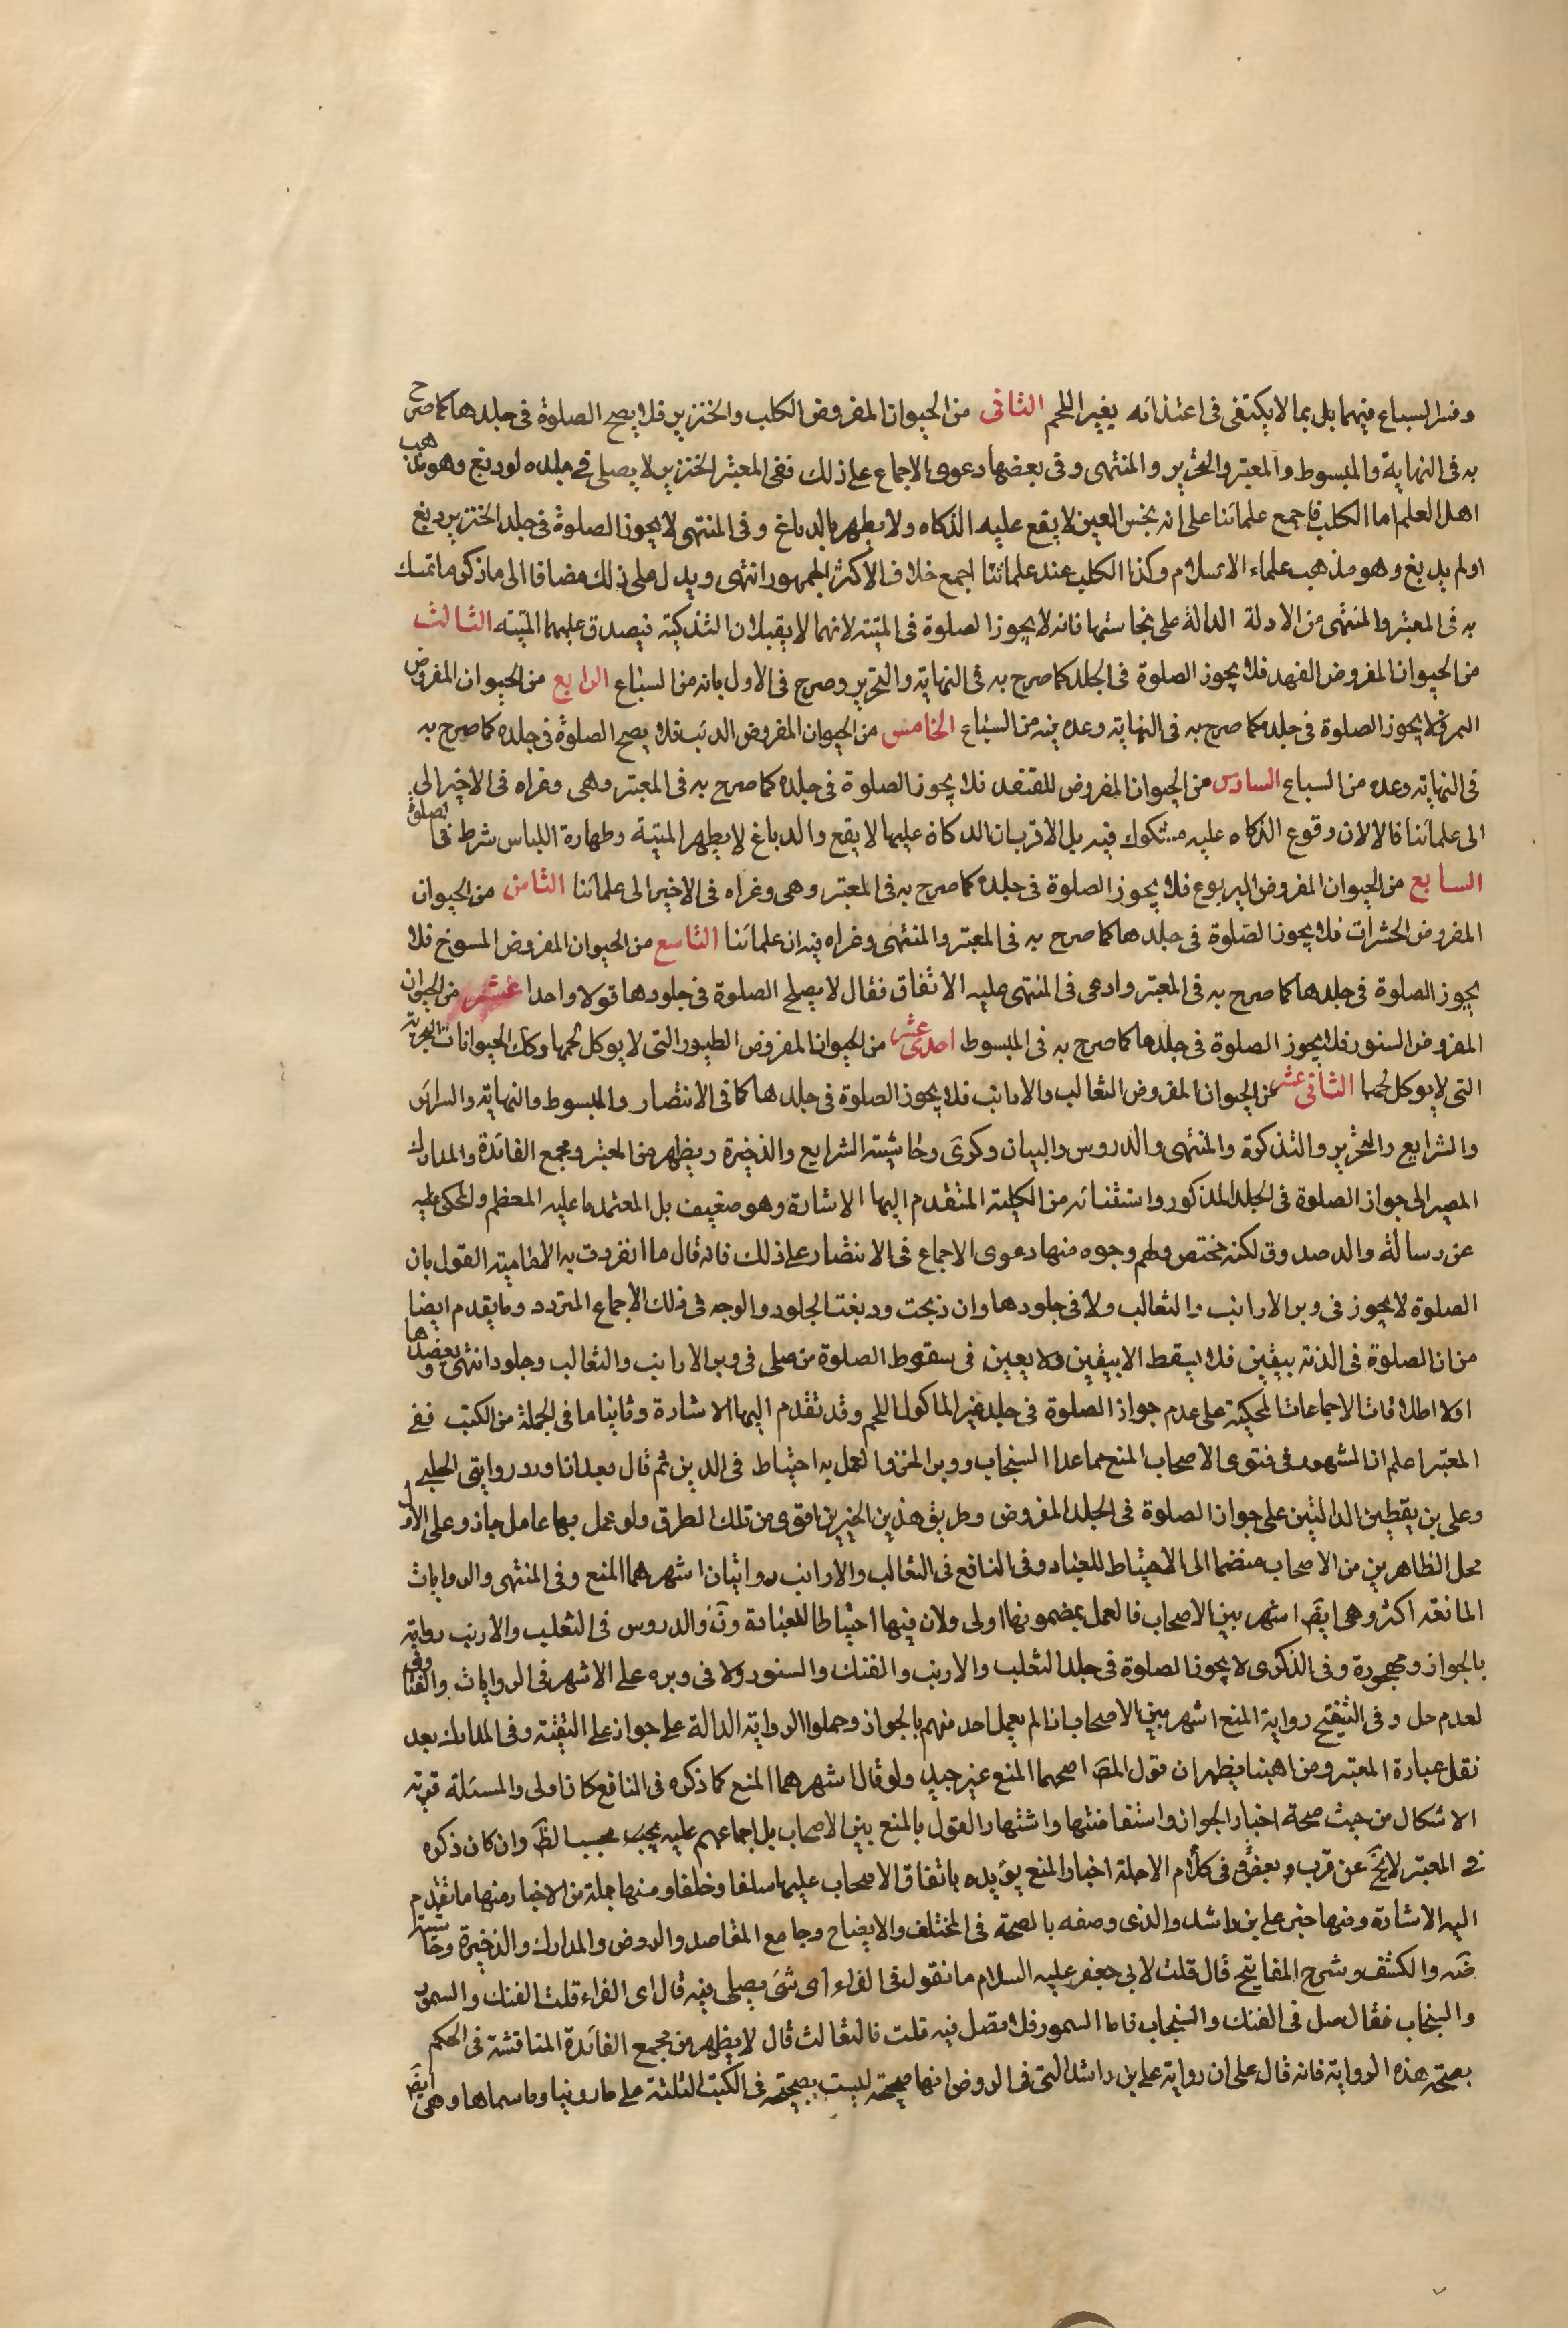 وفسر السباع فيهما بل بما لا يكتفى فى اغتذائه بغير اللحم الثانى من الحيوان المفروض الكلب والخنزير فلا يصح الصلوة فى جلدها كما صرح
به فى النهاية والمبسوط والمعتبر والتحرير والمنتهى وفى بعضها دعوى الاجماع على ذلك ففى المعتبر الخنزير لا يصلى فى جلده لو دبغ وهو مذهب
اهل العلم اما الكلب فاجمع علمائنا على انه نجس العين لا يقع عليه الذكاه ولا يطهر بالدباغ وفى المنتهى لا يجوز الصلوة فى جلد الخنزير دبغ
او لم يدبغ وهو مذهب علماء الاسلام وكذا الكلب عند علمائنا اجمع خلافا لاكثر الجمهور انتهى ويدل على ذلك مضافا الى ما ذكر ما تمسك
به فى المعتبر والمنتهى من الادلة الدالة على نجاستها فانه لا يجوز الصلوة فى الميتة لانهما لا يقبلان التذكية فيصدق عليهما الميته الثالث
من الحيوان المفروض الفهد فلا يجوز الصلوة فى الجلد كما صرح به فى النهاية والتحرير وصرح فى الاول بانه من السباع الرابع من الحيوان المفروض
النمر فلا يجوز الصلوة فى جلده كما صرح به فى النهاية وعده فيه من السباع الخامس من الحيوان المفروض الذئب فلا يصح الصلوة فى جلده كما صرح به
فى النهاية وعده من السباع السادس من الحيوان المفروض للقنفذ فلا يجوز الصلوة فى جلده كما صرح به فى المعتبر وهى وغراه فى الاخير الى
الى علمائنا قالا لان وقوع الذكاه عليه مشكوك فيه بل الاقرب ان الذكاة عليها لا يقع والدباغ لا يطهر الميتة وطهارة اللباس شرط فى الصلوة
السابع من الحيوان المفروض اليربوع فلا يجوز الصلوة فى جلده كما صرح به فى المعتبر وهى وغراه فى الاخير الى علمائنا الثامن من الحيوان
المفروض الحشرات فلا يجوز الصلوة فى جلدها كما صرح به فى المعتبر والمنتهى وغراه فيه ان علمائنا التاسع من الحيوان المفروض المسوخ فلا
يجوز الصلوة فى جلدها كما صرح به فى المعتبر وادعى فى المنتهى عليه الاتفاق فقال لا يصلح الصلوة فى جلودها قولا واحدا عشر من الحيوان
المفروض السنور فلا يجوز الصلوة فى جلدها كما صرح به فى المبسوط احدى عشر من الحيوان المفروض الطيور التى لا يوكل لحمها وكك الحيوانات البحرية
التى لا يوكل لحمها الثانى عشر من الحيوان المفروض الثعالب والارانب فلا يجوز الصلوة فى جلدها كما فى الانتصار والمبسوط والنهاية والسرائر
والشرايع والتحرير والتذكرة والمنتهى والدروس والبيان وكرى وحاشيته الشرايع والذخيرة ويظهر من المعتبر ومجمع الفائدة والمدارك
المصير الى جواز الصلوة فى الجلد المذكور واستثنائه من الكلية المتقدم اليها الاشارة وهو ضعيف بل المعتمد ما عليه المعظم والمحكى عليه
عن رسالة والد صدوق لكنه مختص ولهم وجوه منها دعوى الاجماع فى الانتصار على ذلك فانه قال ما انفردت به الامامية القول بان
الصلوة لا يجوز فى وبر الارانب والثعالب ولا فى جلودها وان ذبحت ودبغت الجلود والوجه فى ذلك الاجماع المتردد وما يقدم ايضا
من ان الصلوة فى الذمة بيقين فلا يسقط الا بيقين ولا يعين فى سقوط الصلوة من صلى فى وبر الارانب والثعالب وجلود انتهى ويعضدها
اولا اطلاقات الاجماعات المحكية على عدم جواز الصلوة فى جلد غير الماكول اللحم وقد تقدم اليها الاشارة وثانيا ما فى الجملة من الكتب ففى
المعتبر اعلم ان المشهور فى فتوى الاصحاب المنع مما عدا السنجاب ووبر الخز والعمل به احتياط فى الدين ثم قال بعد ان اورد روايتى الحلبى
وعلى بن يقطين الدالتين على جواز الصلوة فى الجلد المفروض وطريق هذين الخبرين اقوى من تلك الطرق ولو عمل بهما عامل جاز وعلى الاول
محل الظاهرين من الاصحاب منضما الى الاحتياط للعباد وفى النافع فى الثعالب والارانب روايتان اشهرهما المنع وفى المنتهى والروايات
المانعة اكثر وهى ايضا اشهر بين الاصحاب فالعمل بمضمونها اولى ولان فيها احتياطا للعبادة ون والدروس فى الثعلب والارنب رواية
بالجواز ومهجورة وفى الذكرى لا يجوز الصلوة فى جلد الثعلب والارنب والفنك والسنور ولا فى وبره على الاشهر فى الروايات والفتاوى
لعدم حل وفى التنقيح رواية المنع اشهر بين الاصحاب اذ لم يعمل احد منهم بالجواز وحملوا الرواية الدالة على جواز على التقية وفى المدارك بعد
نقل عبارة المعتبر ومن اهبنا يظهر ان قول المص اصحهما المنع غير جيد ولو قال اشهرهما المنع كما ذكره فى النافع كان اولى والمسئلة قوية
الاشكال من حيث صحة اخبار الجواز واستفاضتها واشتهار القول بالمنع بين الاصحاب بل اجماعهم عليه بحسب الظ وان كان ذكره
فى المعتبر لا يخ عن قرب وبعض فى كلام الاجلة اخبار المنع يؤيده باتفاق الاصحاب عليها سلفا وخلفا ومنها جملة من الاخبار منها ما تقدم
اليه الاشارة ومنها خبر على بن راشد والذى وصفه بالصحة فى المختلف والايضاح وجامع المقاصد والروض والمدارك والذخيرة وحاشيته
ضه والكشف وشرح المفاتيح قال قلت لابى جعفر عليه السلام ما تقول فى الفراء اى شئ يصلى فيه قال اى الفراء قلت الفنك والسمور
والسنجاب فقال صل فى الفنك والسنجاب فاما السمور فلا تصل فيه قلت فالثعالث قال لا يظهر من مجمع الفائدة المناقشة فى الحكم
بصحة هذه الرواية فانه قال على ان رواية على بن راشد التى فى الروض انها صحيحة ليست بصحيحة فى الكتب الثلثة على ما روينا وما سماها وهى ايض